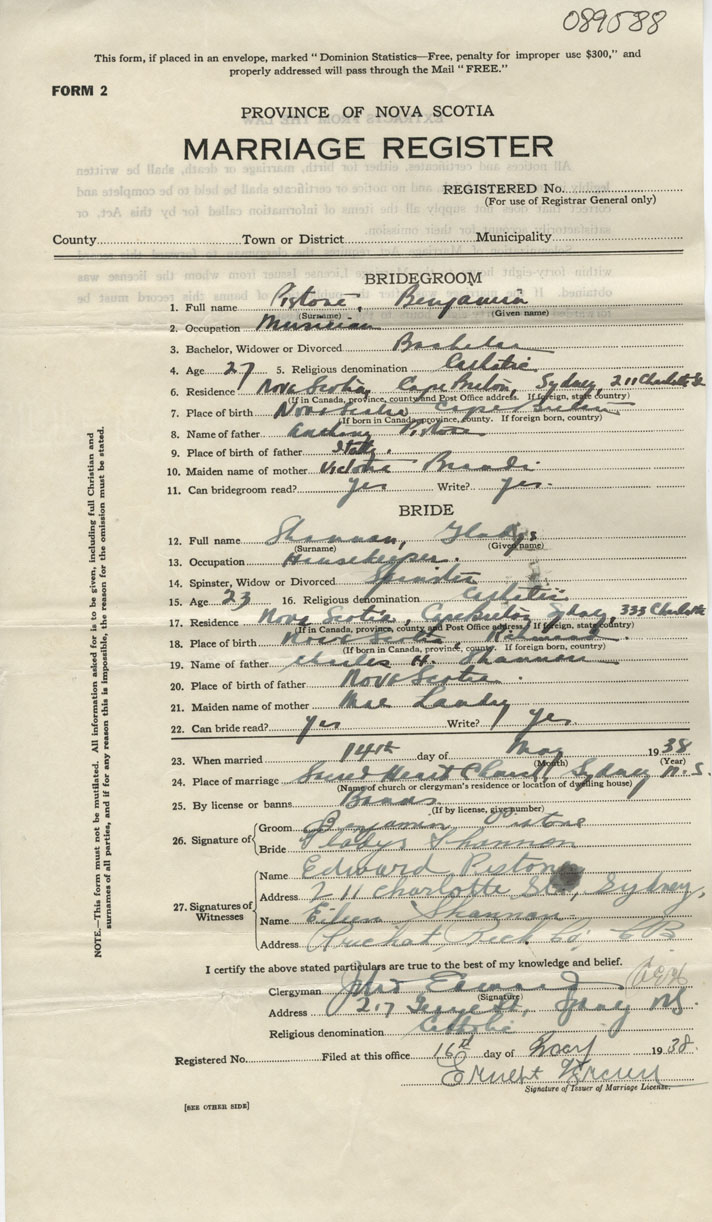 089588
This form, if placed in an envelope, marked "Dominion Statistics—Free, penalty for improper use $300," and
properly addressed will pass through the Mail "FREE."
FORM 2
PROVINCE OF NOVA SCOTIA
MARRIAGE REGISTER
REGISTERED No.
(For use of Registrar General only)
County Town or District Municipality
BRIDEGROOM
1. Full name Pistone, Benjamin
(Surname) (Given name)
2. Occupation Musician
3. Bachelor, Widower or Divorced Bachelor
4. Age 27 5. Religious denomination Catholic
6. Residence Nova Scotia, Cape Breton, Sydney, 211 Charlotte St
(If in Canada, province, county and Post Office address. If foreign, state country)
7. Place of birth Nova Scotia Cape Breton
(If born in Canada, province, county. If foreign born, country)
8. Name of father Anthony Pistone
9. Place of birth of father Italy.
10. Maiden name of mother Victoria
11. Can bridegroom read? yes Write? yes.
BRIDE
12. Full name Shannon, Gladys
(Surname) (Given name)
13. Occupation Housekeeper.
14. Spinster, Widow or Divorced Spinster
15. Age 23 16. Religious denomination Catholic
17. Residence Nova Scotia, Cape Breton, Sydney, 333 Charlotte
(If in Canada, province, county and Post Office address. If foreign, state country)
18. Place of birth Nova Scotia, Richmond.
(If born in Canada, province, county. If foreign born, country)
19. Name of father Charles H. Shannon
20. Place of birth of father Nova Scotia.
21. Maiden name of mother Mae Landry
22. Can bride read? yes Write? yes.
23. When married 14th day of May 1938
(Month) (Year)
24. Place of marriage Sacred Heart Church, Sydney N.S.
(Name of church or clergyman's residence or location of dwelling house)
25. By license or banns Banns
(If by license, give number)
26. Signature of Groom Benjamin Pistone
Bride Gladys Shannon
27. Signatures of Witnesses
Name Edward Pistone
Address 211 Charlotte St., Sydney,
Name Eileen Shannon
Address Rich. Co. CB
I certify the above stated particulars are true to the best of my knowledge and belief.
Clergyman
(Signature)
Address 217 George St., Sydney N.S.
Religious denomination Catholic
Registered No. Filed at this office 16th day of May 1938.
Ernest
Signature of Issuer of Marriage License.
[SEE OTHER SIDE]
NOTE.—This form must not be mutilated. All information asked for is to be given, including full Christian and
surnames of all parties, and if for any reason this is impossible, the reason for the omission must be stated.